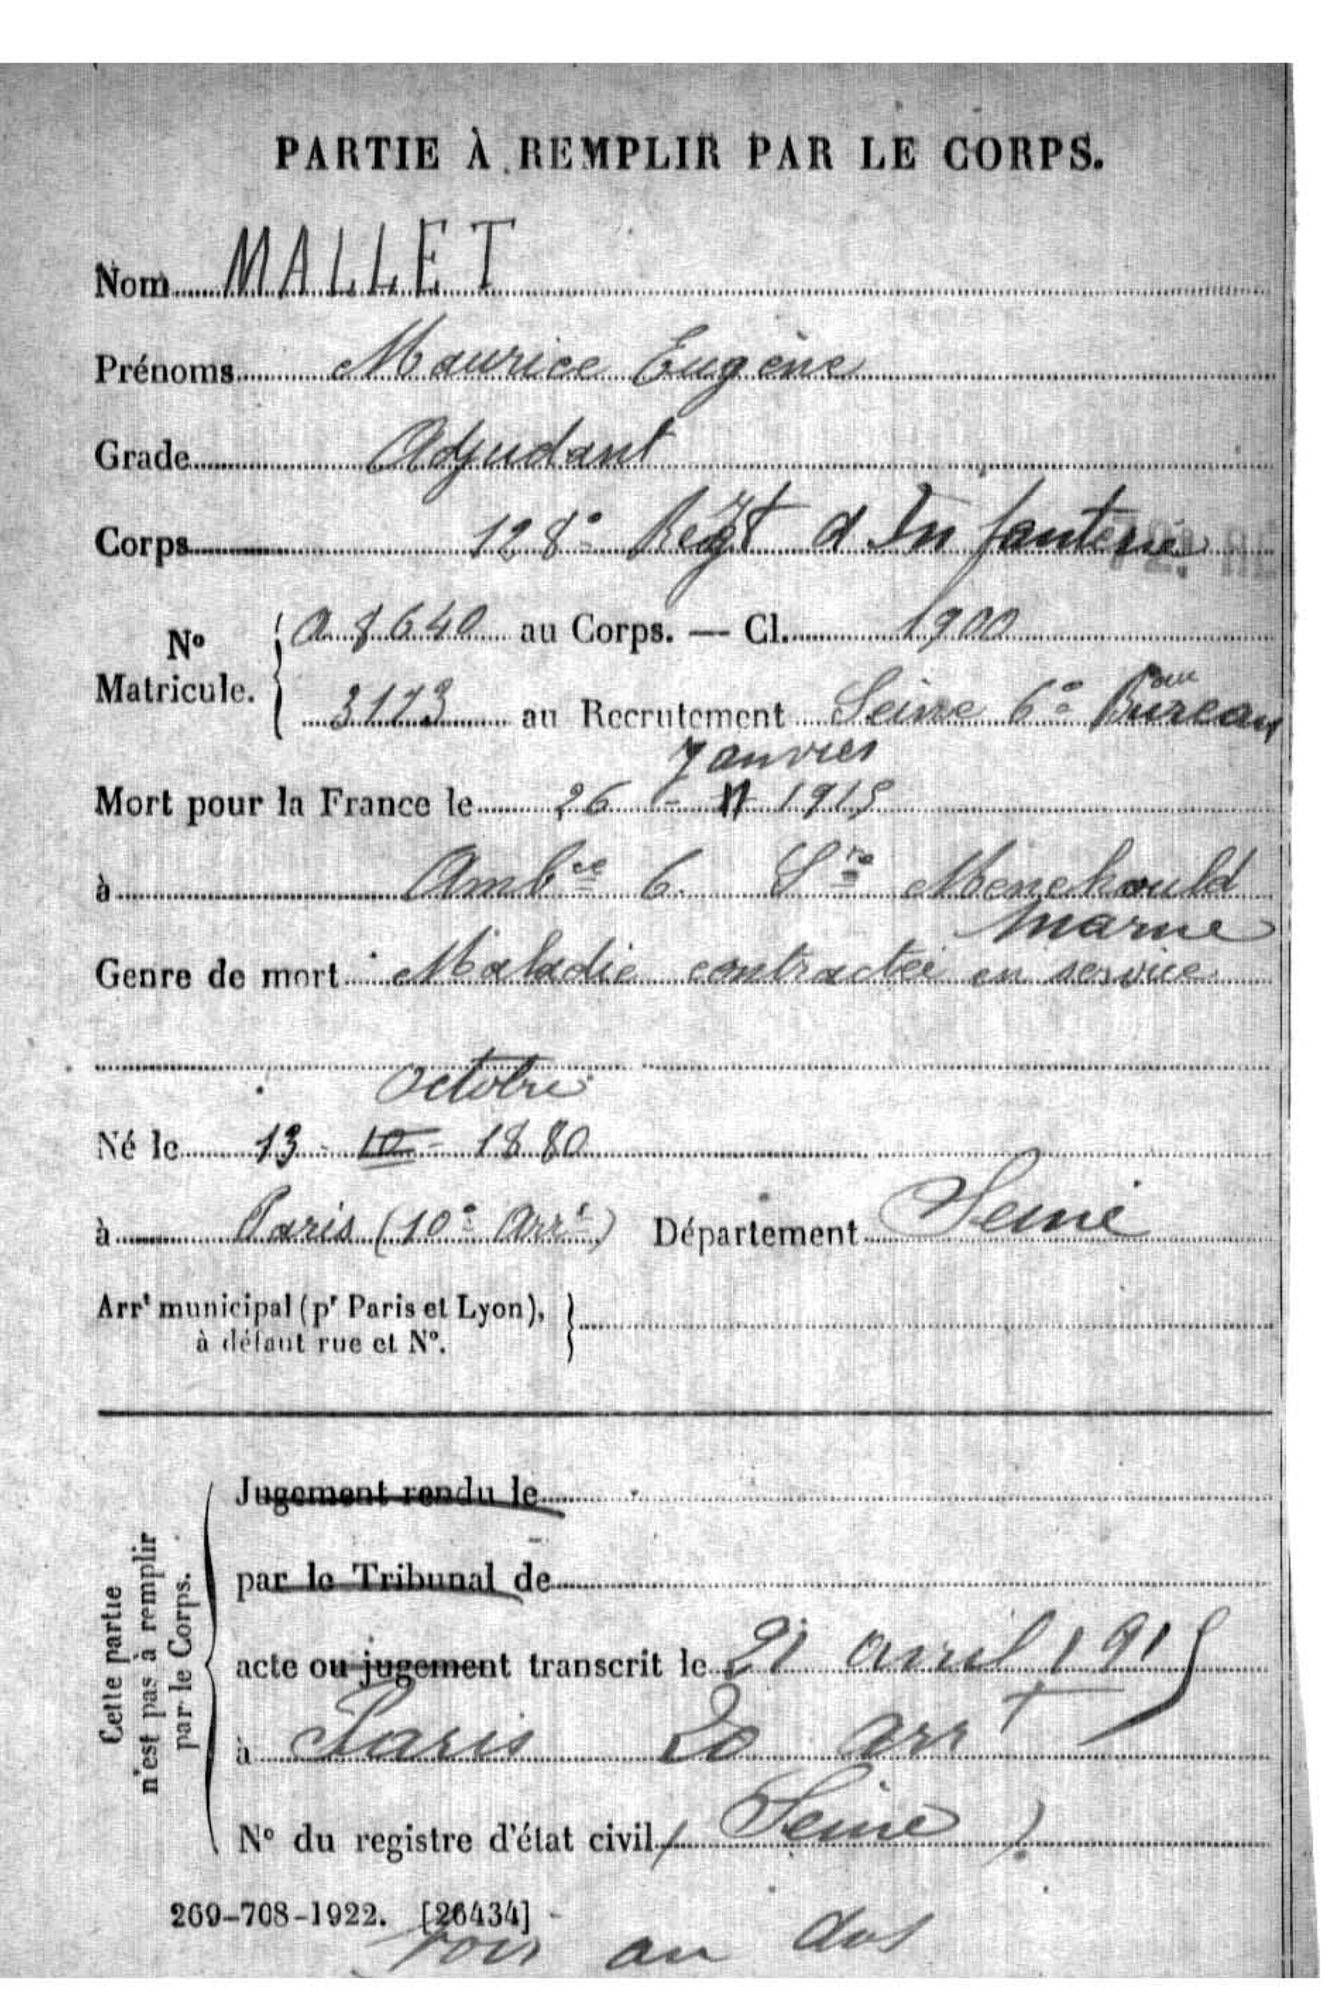 PARTIE À REMPLIR PAR LE CORPS.
Nom MALLET
Prénoms Maurice Eugène
Grade Adjudant
Corps 128e Régt d'Infanterie
No Matricule. { a 8640 au Corps. — Cl. 1900
3173 au Recrutement Seine 6e Bureau
Janvier
Mort pour la France le 26 - 1915
à Ambce 6. Ste Menehould
Marne
Genre de mort Maladie contractée en service
Octobre
Né le 13 - 10 - 1880
à Paris (10e Arrt) Département Seine
Arrt municipal (pr Paris et Lyon),
à défaut rue et No.
Cette partie
n'est pas à remplir
par le Corps.
Jugement rendu le
par le Tribunal de
acte ou jugement transcrit le 21 avril 1915
à Paris 20 arrt
No du registre d'état civil (Seine)
269-708-1922. [26434]
Voir au dos